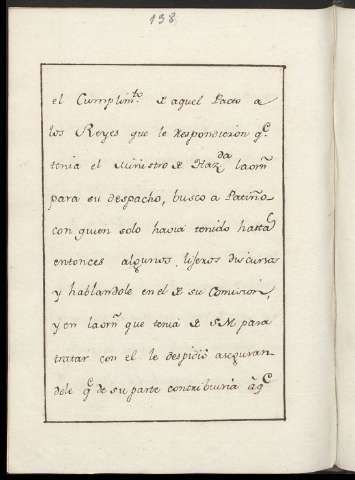 138
el Cumplim.to D aquel Pacto a
los Reyes que le Respondieron q.e
tenia el Ministro D Haz.da la orn̄
para su despacho, busco a Patiño
con quien solo havia tenido hasta
entonces algunos lijeros discursos
y hablandole en el D su Comision,
y en la orn̄ que tenia D S M para
tratar con el le despidió aseguran-
dole q.e de su parte contribuiria â q.e